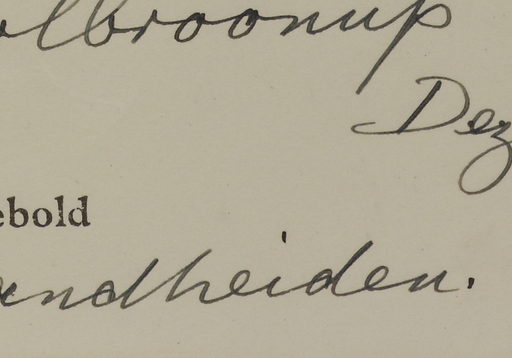 olbroonup
Dez
ebold
endheiden.